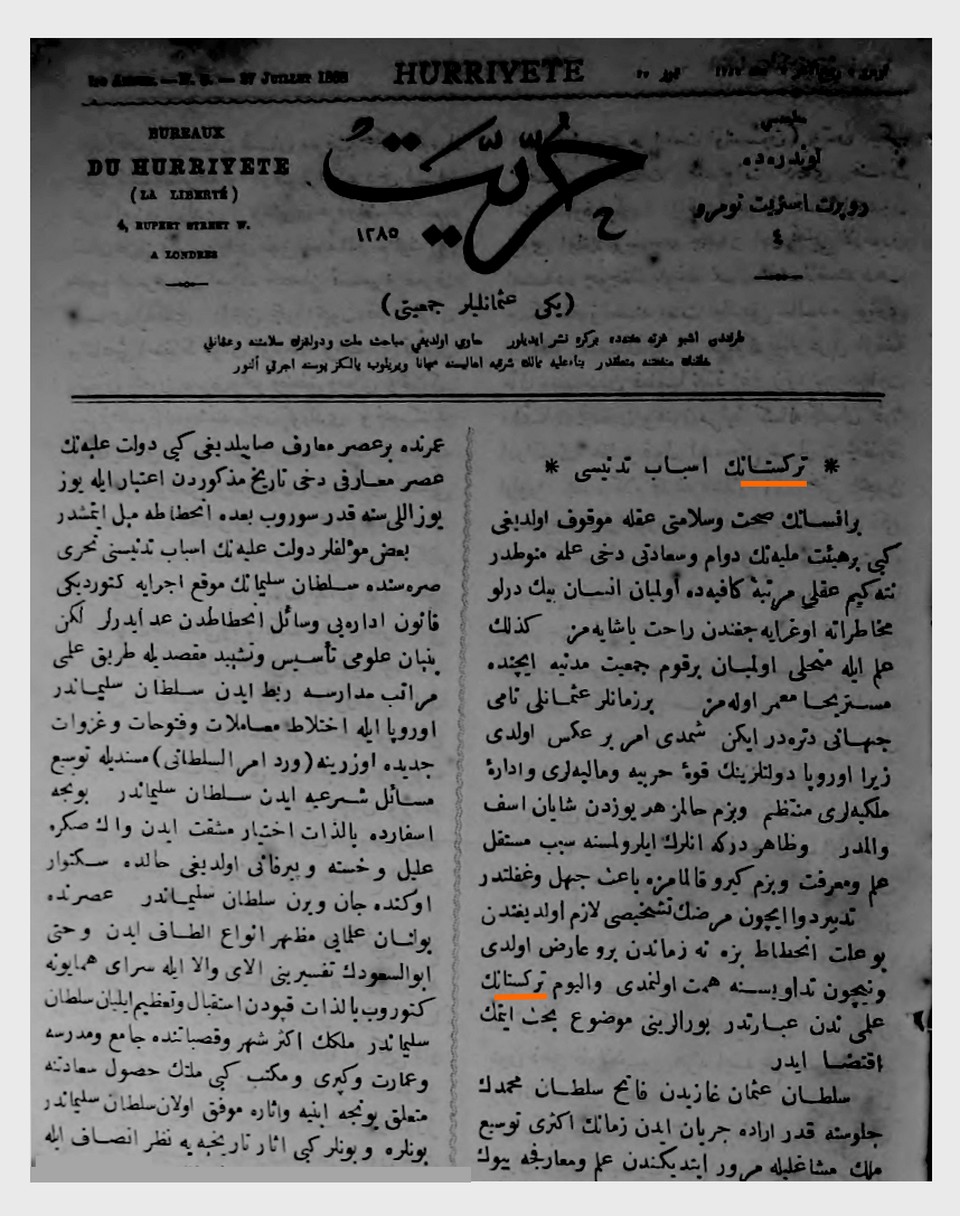 1re Année. — N. 5. — 27 Juillet 1868
HURRIYETE
BUREAUX
DU HURRIYETE
(LA LIBERTÉ)
4, RUPERT STREET W.
A LONDRES
حريّت
١٢٨٥
لوندره‌ده
روپرت استريت نومرو
٤
(يكی عثمانليلر جمعيتی)
طرفندن اشبو غزته هفته‌ده بركره نشر ايديلور حاوی اولديغی مباحث ملت ودولتك سلامتنه وعثمانلی
خلقنك منفعتنه متعلقدر بناءعليه ممالك شرقيه اهاليسنه مجانا ويريلوب يالكز پوسته اجرتی آلنور
* تركستانك اسباب تدنيسی *
برانسانك صحت وسلامتی عقله موقوف اولديغی
كبی برهيئت مليه‌نك دوام وسعادتی دخی علمه منوطدر
نته‌كيم عقلی مرتبهٔ كافيه‌ده اولميان انسان بيك درلو
مخاطراته اوغرايه‌جغندن راحت ياشايه‌مز كذلك
علم ايله متحلی اولميان برقوم جمعيت مدنيه ايچنده
مستريحا معمر اوله‌مز برزمانلر عثمانلی نامی
جهانی دتره‌در ايكن شمدی امر بر عكس اولدی
زيرا اوروپا دولتلرينك قوهٔ حربيه وماليه‌لری وادارهٔ
ملكيه‌لری منتظم وبزم حالمز هر يوزدن شايان اسف
والمدر وظاهر دركه انلرك ايلرولمسنه سبب مستقل
علم ومعرفت وبزم كيرو قالمامزه باعث جهل وغفلتدر
تدبير دوا ايچون مرضك تشخيصی لازم اولديغندن
بو علت انحطاط بزه نه زماندن برو عارض اولدی
ونيچون تداويسنه همت اولنمدی واليوم تركستانك
علمی ندن عبارتدر بورالرينی موضوع بحث ايتمك
اقتضا ايدر
سلطان عثمان غازيدن فاتح سلطان محمدك
جلوسنه قدر اراده جريان ايدن زمانك اكثری توسيع
ملك مشاغليله مرور ايتديكندن علم ومعارفجه بيوك
عمرنده برعصر معارف صاييلديغی كبی دولت عليه‌نك
عصر معارفی دخی تاريخ مذكوردن اعتبار ايله يوز
يوز اللی سنه قدر سوروب بعده انحطاطه ميل ايتمشدر
بعض مؤلفلر دولت عليه‌نك اسباب تدنيسنی تحری
صره‌سنده سلطان سليمانك موقع اجرايه كتوردیكی
قانون اداره‌يی وسائل انحطاطدن عد ايدرلر لكن
بنيان علومی تأسيس وتشييد مقصديله طريق علمی
مراتب مدارسه ربط ايدن سلطان سليماندر
اوروپا ايله اختلاط معاملات وفتوحات وغزوات
جديده اوزرينه (ورد امر السلطانی) مسنديله توسيع
مسائل شرعيه ايدن سلطان سليماندر بونجه
اسفارده بالذات اختيار مشقت ايدن واك صكره
عليل و خسته و پيرفانی اولديغی حالده سكتوار
اوكنده جان ويرن سلطان سليماندر عصرنده
بولنان علمايی مظهر انواع الطاف ايدن وحتی
ابوالسعودك تفسيرينی الای والا ايله سرای همايونه
كتوروب بالذات قپودن استقبال وتعظيم ايليان سلطان
سليماندر ملكك اكثر شهر وقصباتنده جامع ومدرسه
وعمارت وكپری ومكتب كبی ملتك حصول سعادتنه
متعلق بونجه ابنيه واثاره موفق اولان سلطان سليماندر
بونلره و بونلر كبی اثار تاريخيه يه نظر انصاف ايله